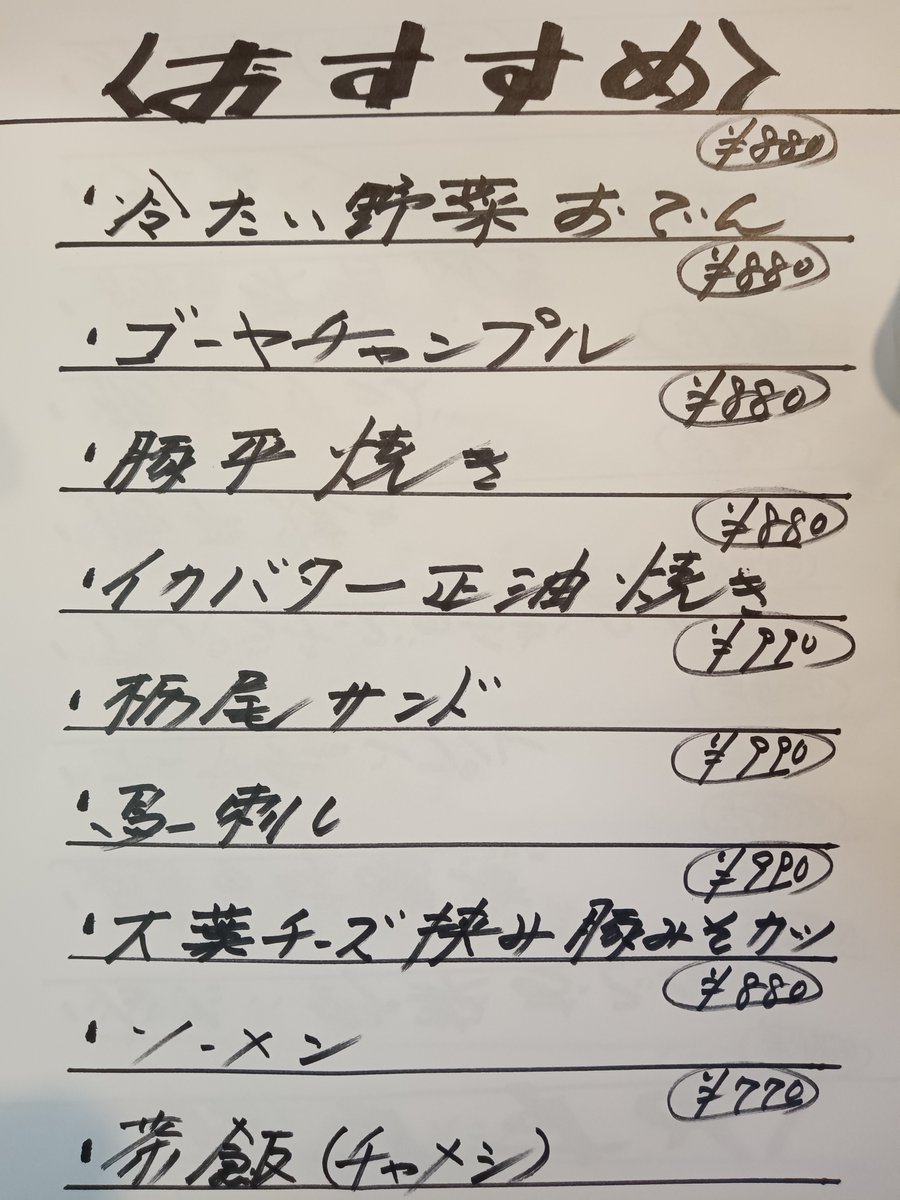 〈おすすめ〉
¥880
・冷たい野菜おでん
¥880
・ゴーヤチャンプル
¥880
・豚平焼き
¥880
・イカバター正油焼き
¥990
・栃尾サンド
¥990
・馬刺し
¥990
・大葉チーズ挟み豚みそカツ
¥880
・ソーメン
¥770
・茶飯(チャメシ)